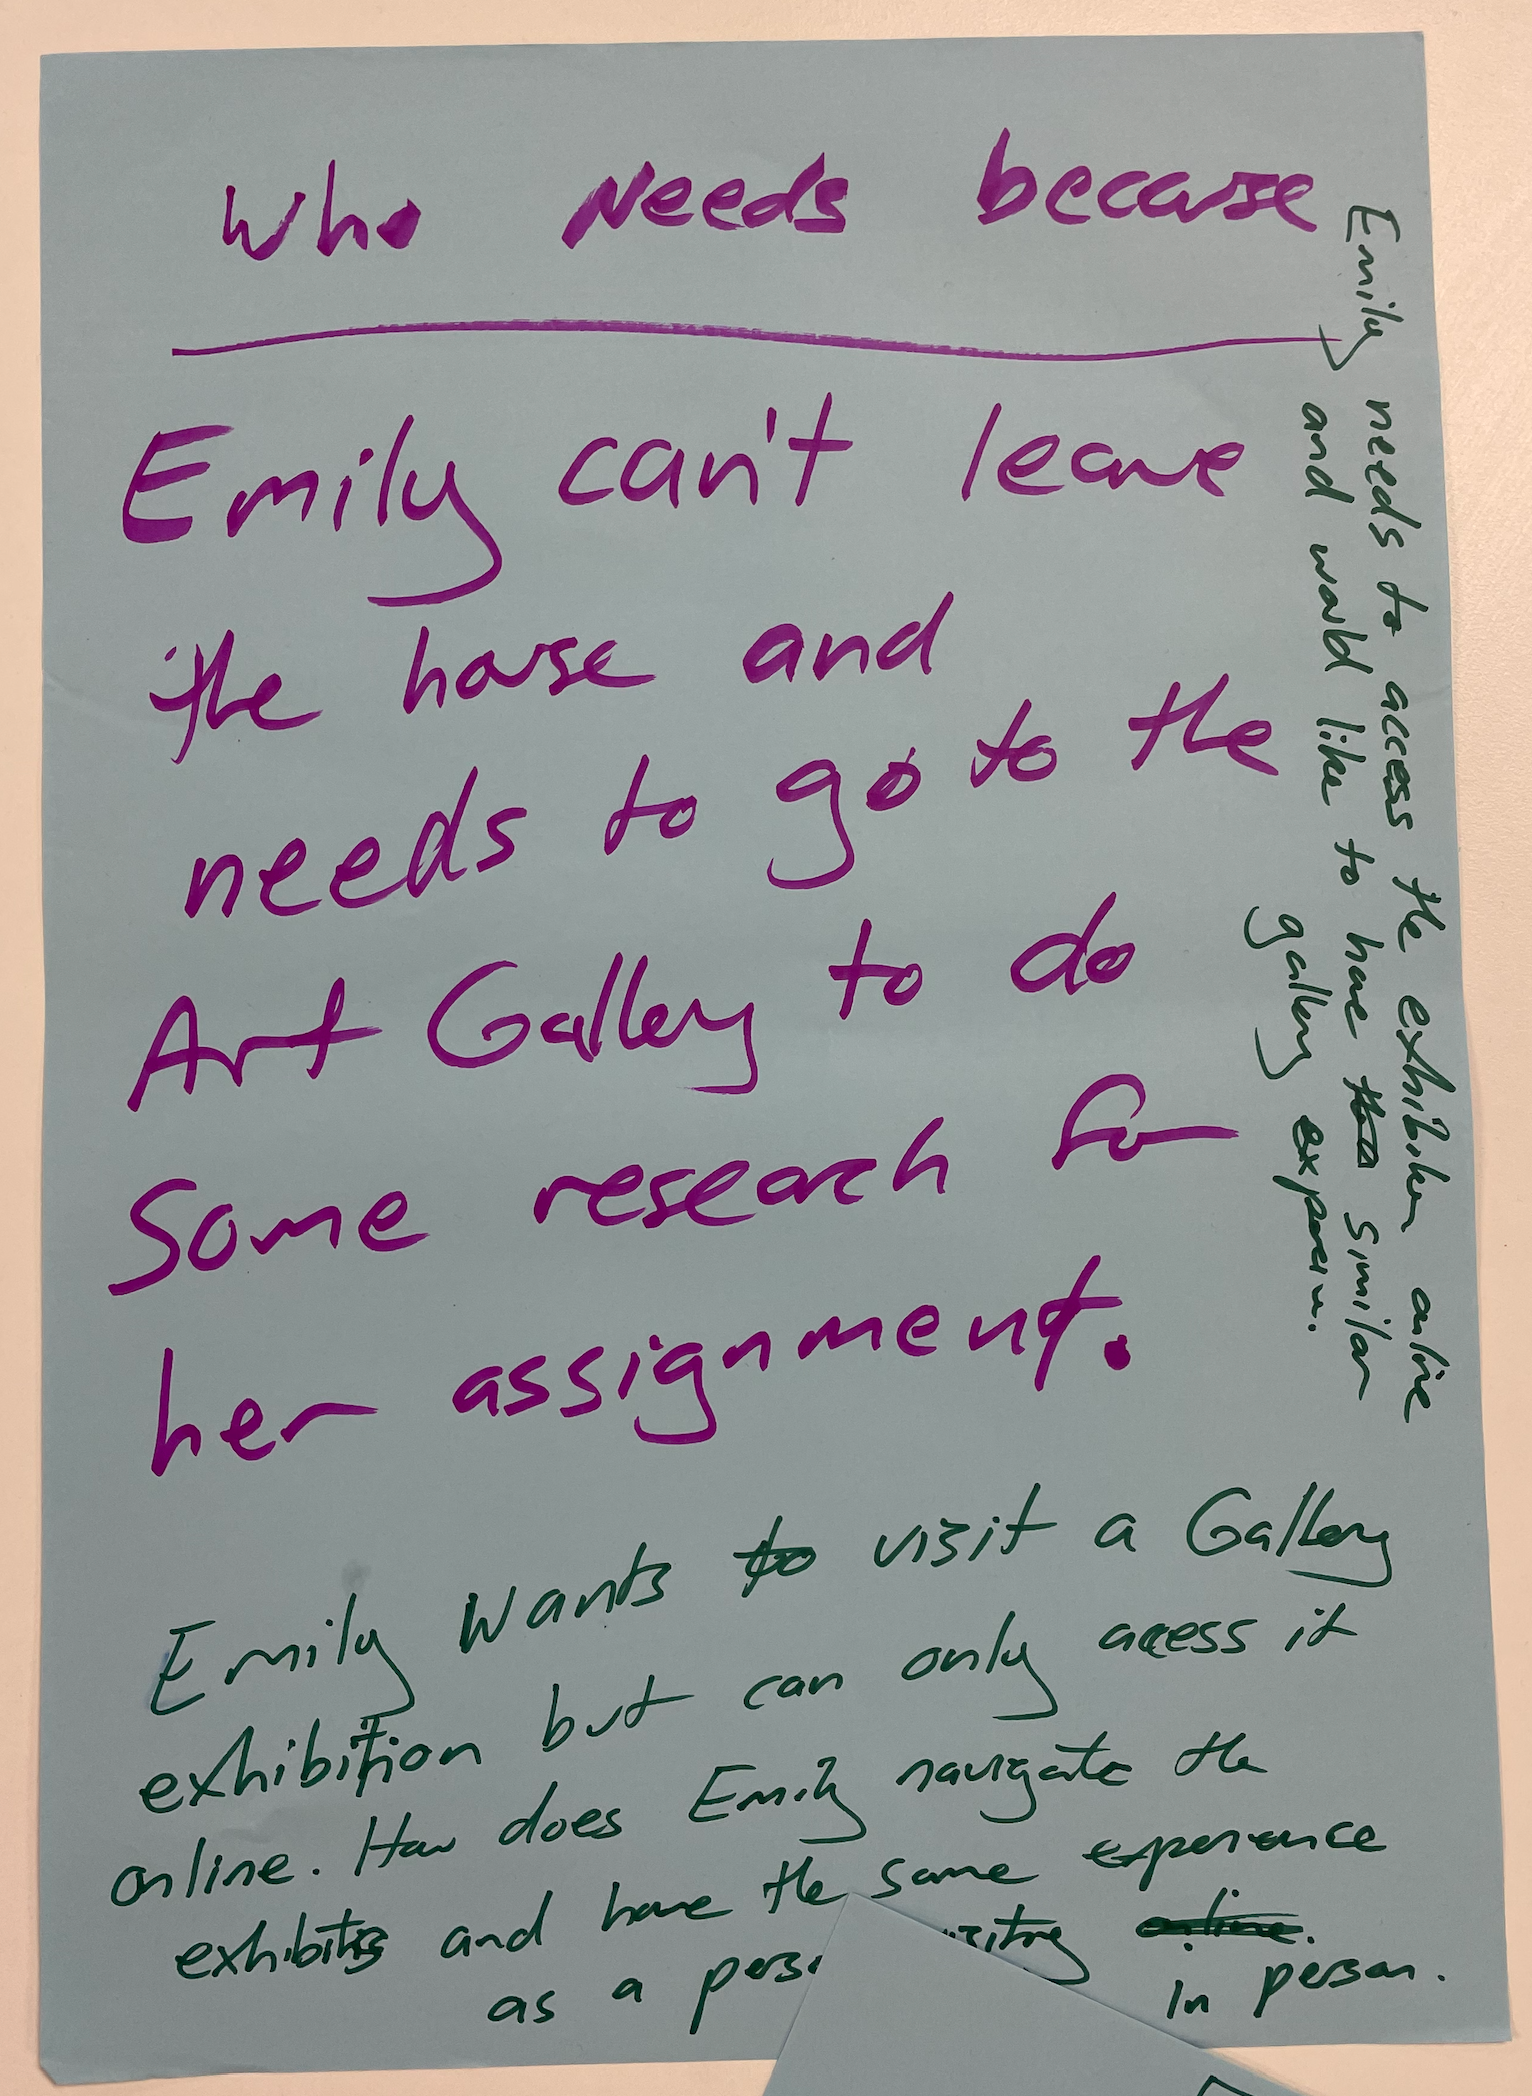 who Needs because
Emily can't leave
the house and
needs to go to the
Art Gallery to do
Some research for
her assignment.
Emily needs to access the exhibition online
and would like to have similar
gallery experience.
Emily Wants to visit a Gallery
exhibition but can only access it
online. How does Emily navigate the
exhibits and have the same experience
as a in person.